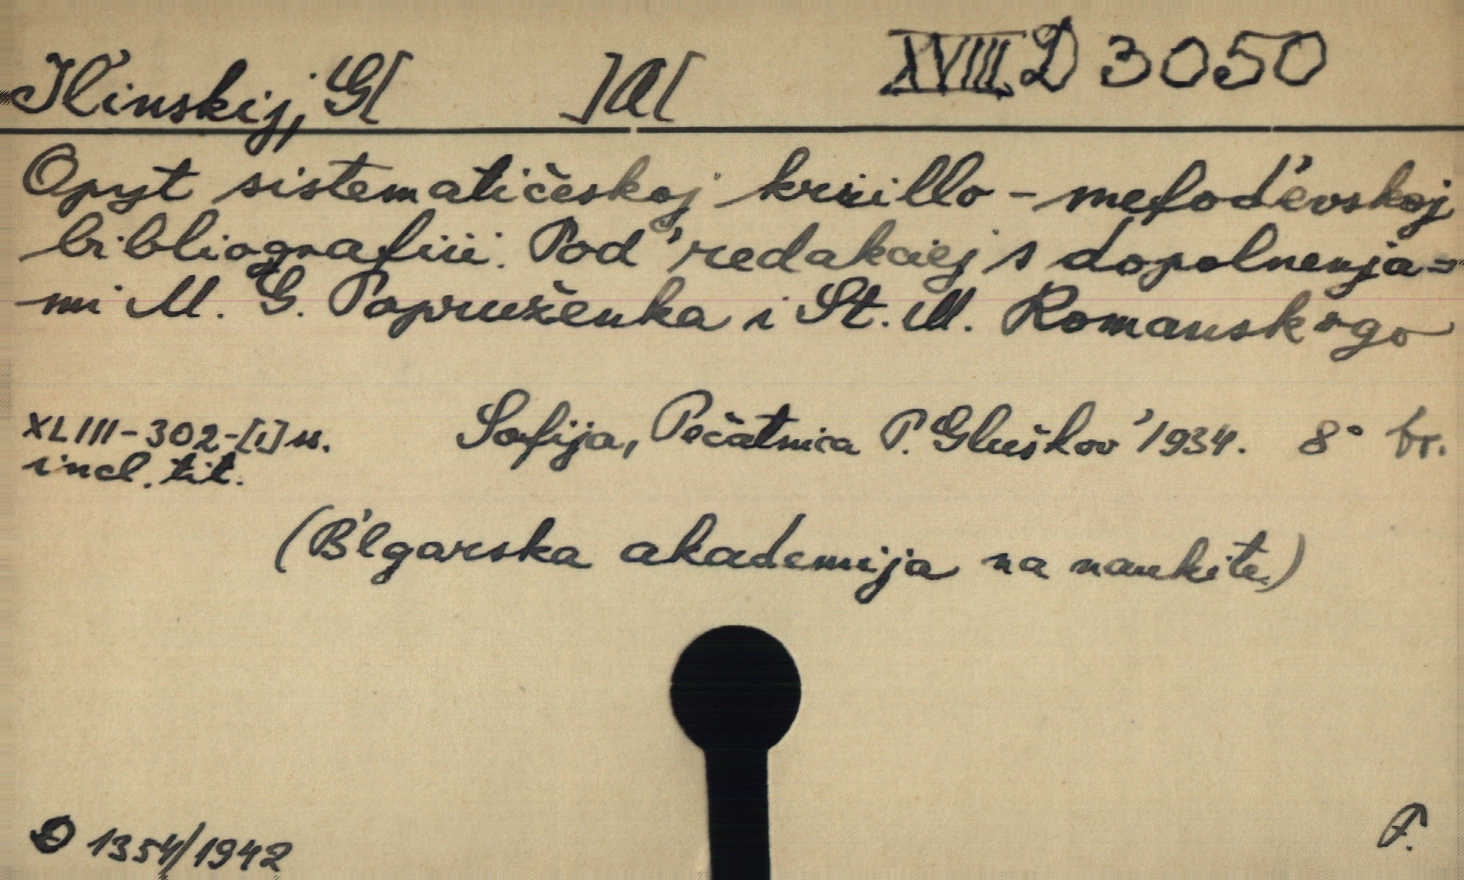 Il'inskij, G[ ]A[ XVIII D 3050
Opyt sistematičeskoj kirillo-mefod'evskoj
bibliografiii. Pod' redakciej s dopolnenja=
mi M. G. Popruženka i St. M. Romanskogo
XLIII-302-[1] ss. Sofija, Pečatnica P. Gluškov' 1934. 8° br.
incl. tit.
(B'lgarska akademija na naukite)
D 1354/1942 P.